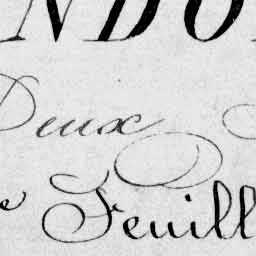 NDO
Deux
e Feuill